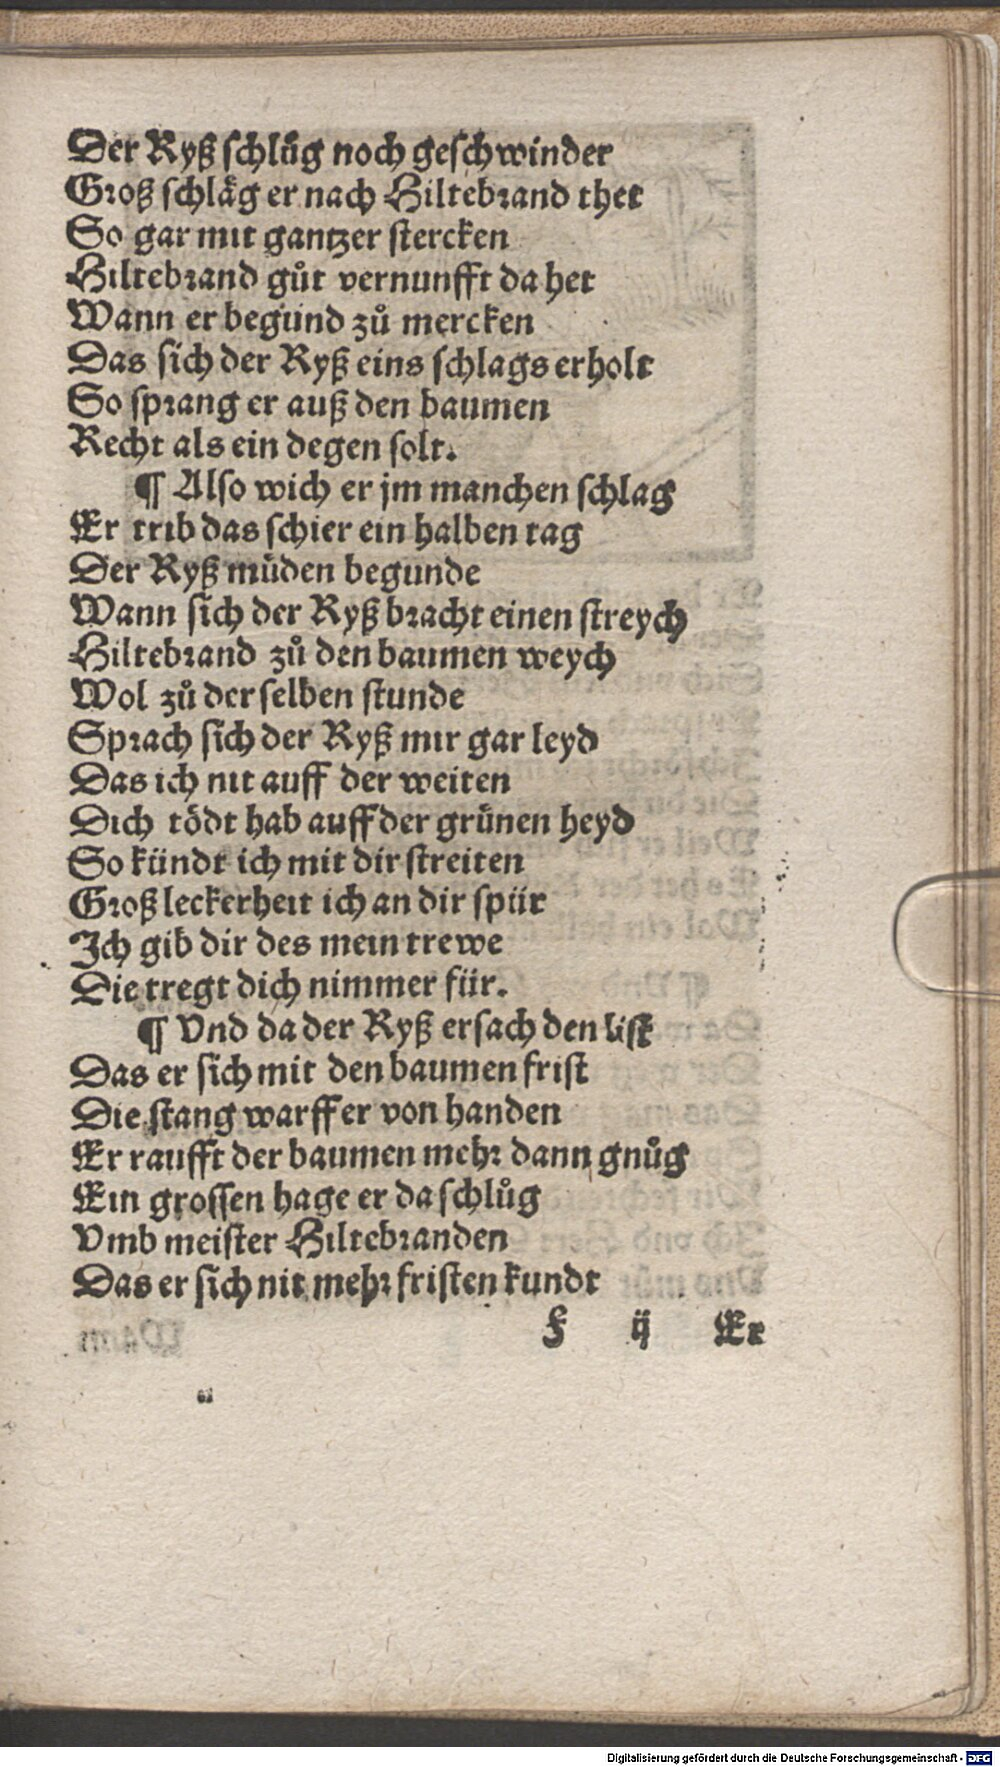 Der Ryß ſchlůg noch geſchwinder
Groß ſchläg er nach Hiltebrand thet
So gar mit gantzer ſtercken
Hiltebrand gůt vernunfft da het
Wann er begund zů mercken
Das ſich der Ryß eins ſchlags erholt
So ſprang er auß den baumen
Recht als ein degen ſolt.
¶ Alſo wich er jm manchen ſchlag
Er trib das ſchier ein halben tag
Der Ryß müden begunde
Wann ſich der Ryß bracht einen ſtreych
Hiltebrand zů den baumen weych
Wol zů der ſelben ſtunde
Sprach ſich der Ryß mir gar leyd
Das ich nit auff der weiten
Dich tödt hab auff der grünen heyd
So kündt ich mit dir ſtreiten
Groß leckerheit ich an dir ſpür
Ich gib dir des mein trewe
Die tregt dich nimmer für.
¶ Vnd da der Ryß erſach den liſt
Das er ſich mit den baumen friſt
Die ſtang warff er von handen
Er raufft der baumen mehr dann gnůg
Ein groſſen hage er da ſchlůg
Vmb meiſter Hiltebranden
Das er ſich nit mehr friſten kundt
F ij Er
Digitalisierung gefördert durch die Deutsche Forschungsgemeinschaft - DFG